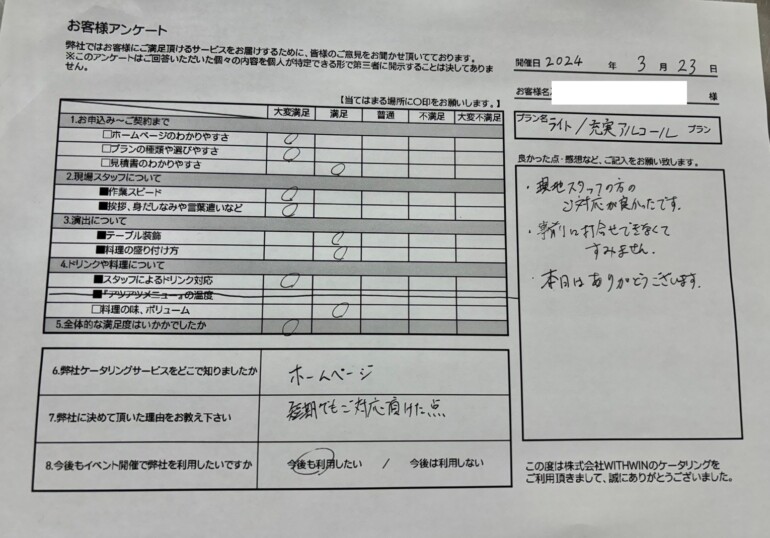 お客様アンケート
弊社ではお客様にご満足頂けるサービスをお届けするために、皆様のご意見をお聞かせ頂いております。
※このアンケートはご回答いただいた個々の内容を個人が特定できる形で第三者に開示することは決してありま
せん。
開催日 2024 年 3 月 23 日
お客様名 様
プラン名 ライト/充実アルコール プラン
【当てはまる場所に〇印をお願いします。】
大変満足 満足 普通 不満足 大変不満足
1.お申込み~ご契約まで
□ホームページのわかりやすさ
□プランの種類や選びやすさ
□見積書のわかりやすさ
2.現場スタッフについて
■作業スピード
■挨拶、身だしなみや言葉遣いなど
3.演出について
■テーブル装飾
■料理の盛り付け方
4.ドリンクや料理について
■スタッフによるドリンク対応
■『アツアツメニュー』の温度
□料理の味、ボリューム
5.全体的な満足度はいかかでしたか
良かった点・感想など、ご記入をお願い致します。
・現地スタッフの方の
ご対応が良かったです.
・事前に打合せできなくて
すみません.
・本日はありがとうございます.
6.弊社ケータリングサービスをどこで知りましたか ホームページ
7.弊社に決めて頂いた理由をお教え下さい 短期でもご対応頂けた点
8.今後もイベント開催で弊社を利用したいですか 今後も利用したい / 今後は利用しない
この度は株式会社WITHWINのケータリングを
ご利用頂きまして、誠にありがとうございました。